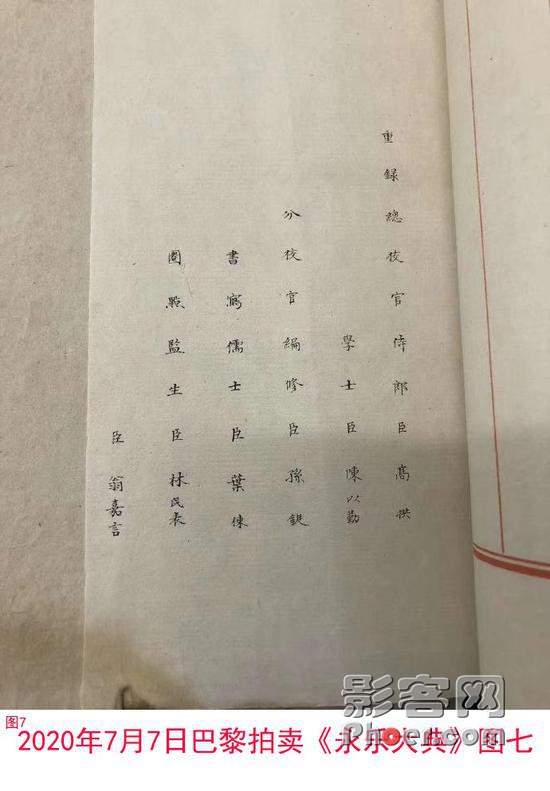 重録總校官侍郎臣高拱
學士臣陳以勤
分校官編修臣孫鋌
書寫儒士臣葉
圈點監生臣林民表
臣翁嘉言
影客网
Phoer.com
图7
2020年7月7日巴黎拍卖《永乐大典》图七